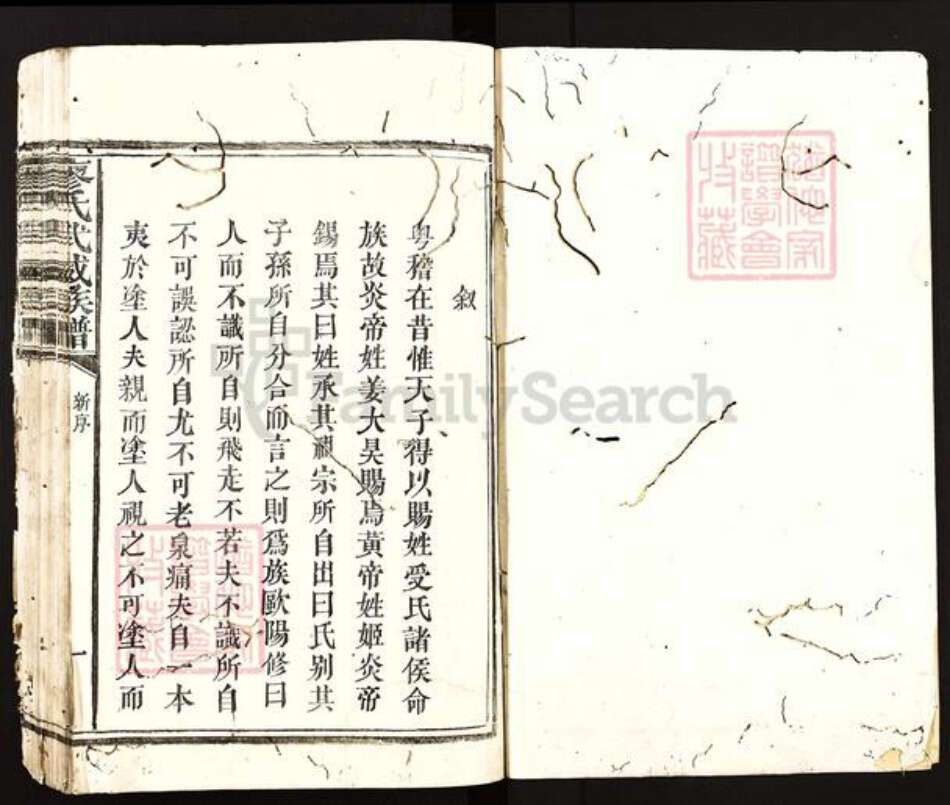 叙
粤稽在昔惟天子得以賜姓受氏諸侯命
族故炎帝姓姜大昊賜焉黃帝姓姬炎帝
錫焉其曰姓承其禰宗所自出曰氏别其
子孫所自分合而言之則爲族歐陽修曰
人而不識所自則飛走不若夫不識所自
不可誤認所自尤不可老泉痛夫自一本
夷於塗人夫親而塗人視之不可塗人而
廖氏武威族譜
新序
一
FamilySearch